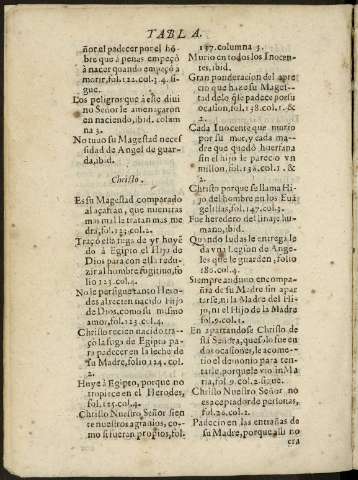 TABLA.
ñor el padecer por el hõ-
bre que à penas empeçò
à nacer quando empeçò a
morir, fol.122.col.3.4. si-
gue.
Los peligros que à este diui
no Señor le amenaçaron
en naciendo, ibid. colum
na 3.
No tuuo su Magestad neces
sidad de Angel de guar-
da, ibid.
Christo.
Es su Magestad comparado
al açafran, que mientras
mas mal le tratan mas me
dra, fol.123.col.2.
Traçò esta fuga de yr huyẽ
do à Egipto el Hijo de
Dios para con ella redu-
zir al hombre fugitiuo, fo
lio 123.col.4.
No le persigue tanco Hero-
des al recien nacido Hijo
de Dios, como su mismo
amor, fol.123.col.4.
Christo recien nacido tra-
çò la fuga de Egipto pa-
ra padecer en la leche de
su Madre, folio 124.col.
2.
Huye à Egipto, porque no
tropiece en el Herodes,
fol.125.col.4.
Christo Nuestro Señor sien
te nuestros agrauios, co-
mo si fueran propios, fol.
137.columna 3.
Murio en todos los Inocen-
tes, ibid.
Gran ponderacion del apre
cio que haze su Mages-
tad de lo q̃ se padece por su
ocasion, fol.138.col.1. &
2.
Cada Inocente que murio
por su mor, y cada ma-
dre que quedò huerfana
sin el hijo le parecio vn
millon, fol.138.col.1. &
2.
Christo porque se llama Hi-
jo del hombre en los Euã
gelistas, fol.147.col.3.
Fue heredero del linaje hu-
mano, ibid.
Quando Iudas le entrega le
da vna Legion de Ange-
les que le guarden, folio
180.col.4.
Siempre anduuo en compa-
ñia de su Madre sin apar
tarse, ni la Madre del Hi-
jo, ni el Hijo de la Madre
fol.9.col.1.
En apartandose Christo de
su Señora, que solo fue en
dos ocasiones, le acome-
tio el demonio para ten-
tarle, porque le vio in Ma
ria, fol.9.col.2. sigue.
Christo Nuestro Señor no
es aceptador de personas,
fol.26.col.2.
Padecio en las entrañas de
su Madre, porque allì no
era